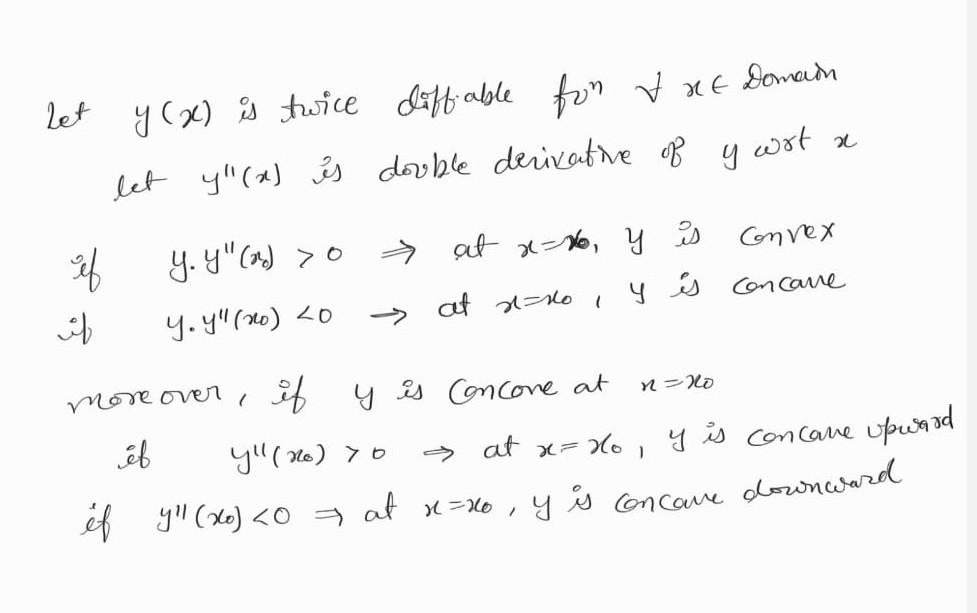 Let y(x) is twice diff.able fun ∀ x ∈ Domain
let y''(x) is double derivative of y wrt x
if y.y''(x₀) > 0 ⇒ at x=x₀, y is convex
if y.y''(x₀) <0 → at x=x₀, y is concave
moreover, if y is Concave at x=x₀
if y''(x₀) > 0 ⇒ at x=x₀, y is concave upward
if y''(x₀) <0 ⇒ at x=x₀, y is concave downward